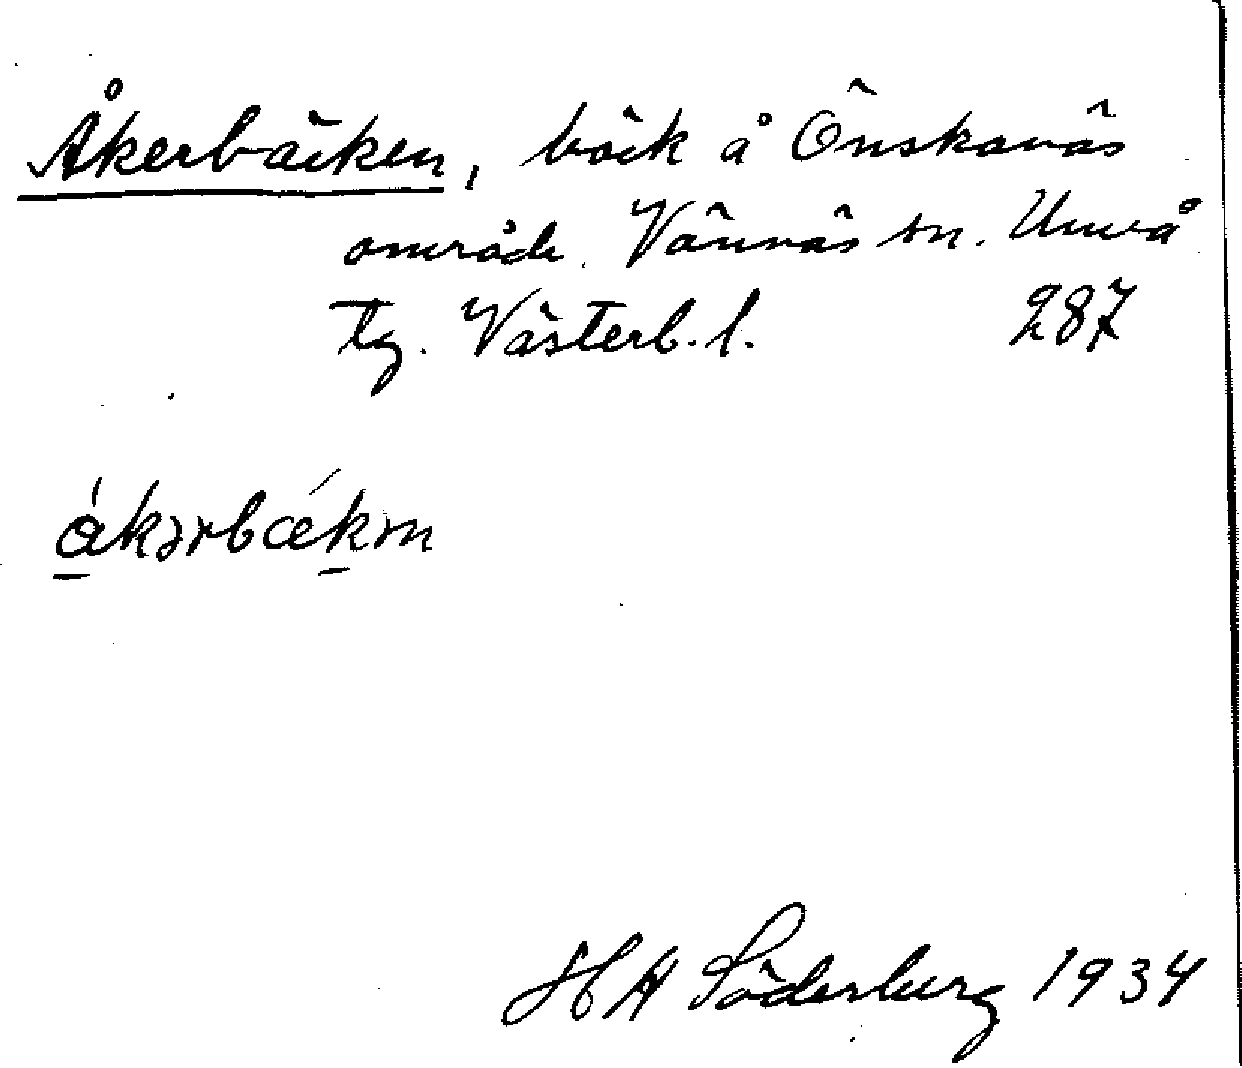 Åkerbäcken, bäck å Önskanäs
område. Vännäs sn. Umeå
tg. Västerb. l. 287
ákərbækən
H A Söderberg 1934